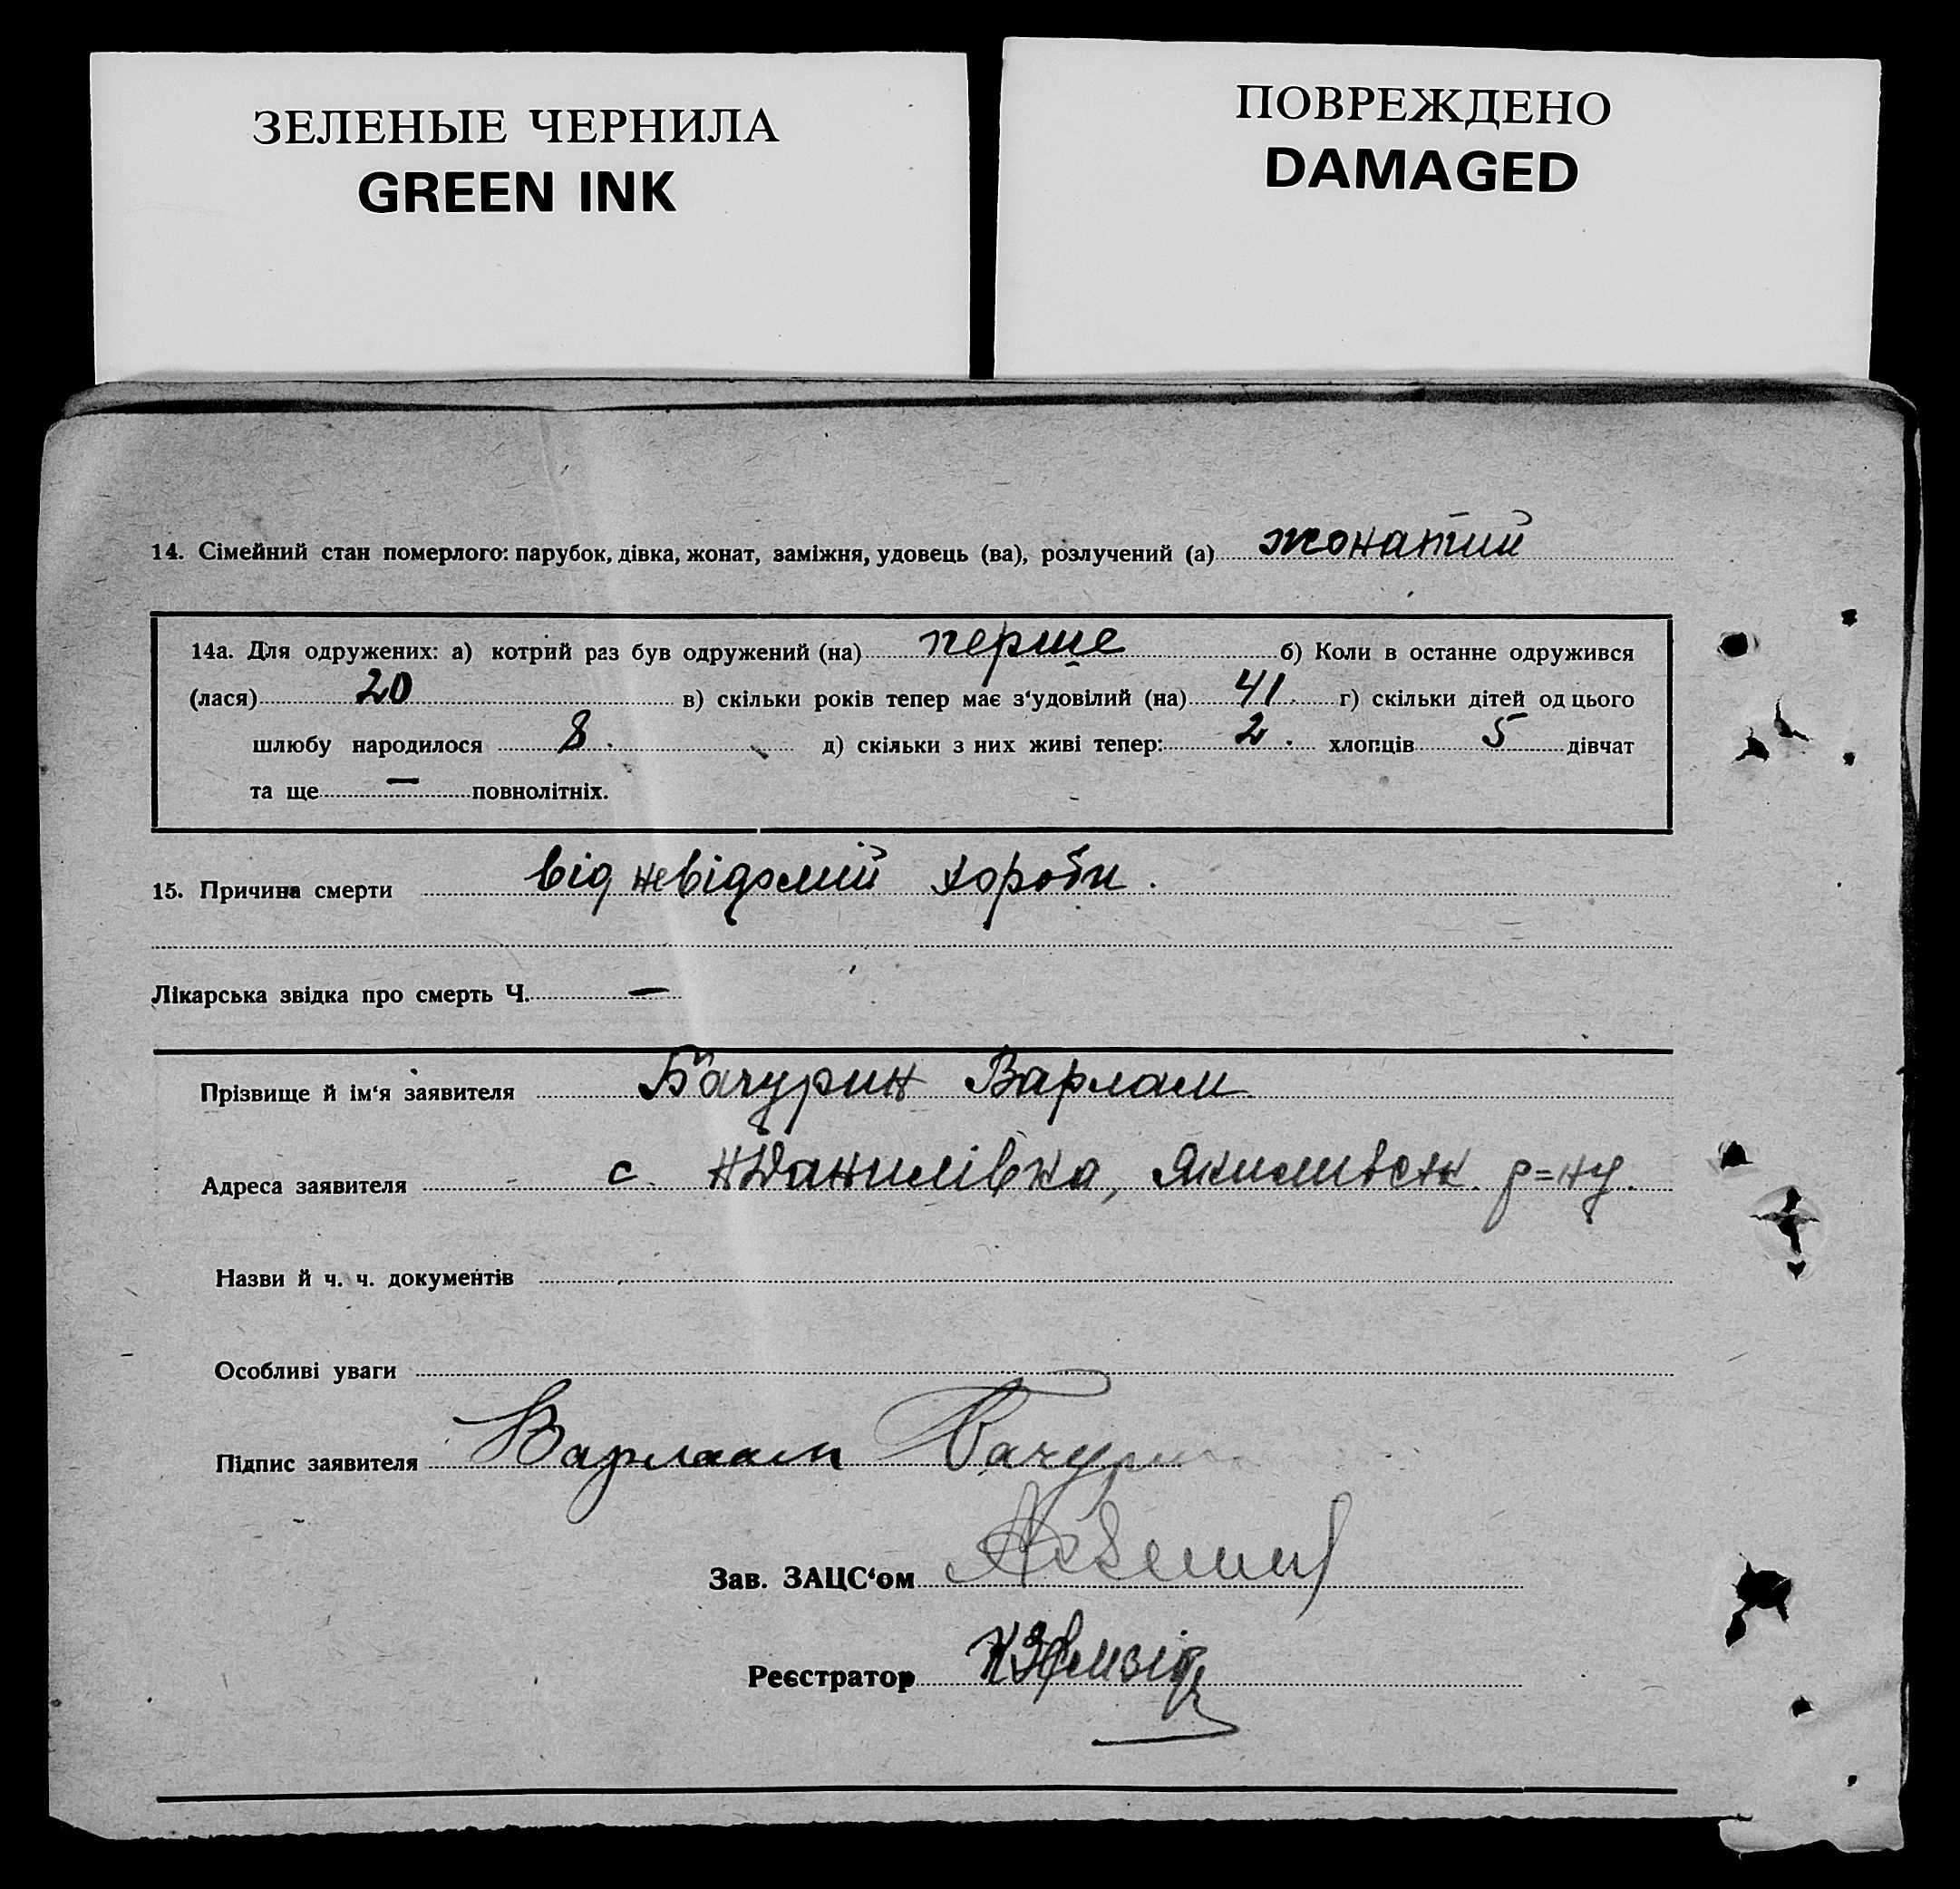 ЗЕЛЕНЫЕ ЧЕРНИЛА
GREEN INK
ПОВРЕЖДЕНО
DAMAGED
14. Сімейний стан померлого: парубок, дівка, жонат, заміжня, удовець (ва), розлучений (а) жонатий
14а. Для одружених: а) котрий раз був одружений (на) перше б) Коли в останне одружився
(лася) 20 в) скільки років тепер має з‘удовілий (на) 41. г) скільки дітей од цього
шлюбу народилося 8. д) скільки з них живі тепер: 2. хлопців 5 дівчат
та ще — повнолітніх.
15. Причина смерти від невідомий хороби.
Лікарська звідка про смерть Ч. —
Прізвище й ім‘я заявителя Бачурин Варлам
Адреса заявителя с. НДанилівка, Якимивськ. р=ну.
Назви й ч. ч. документів
Особливі уваги
Підпис заявителя Варлаам Бачурин
Зав. ЗАЦС‘ом
Реєстратор